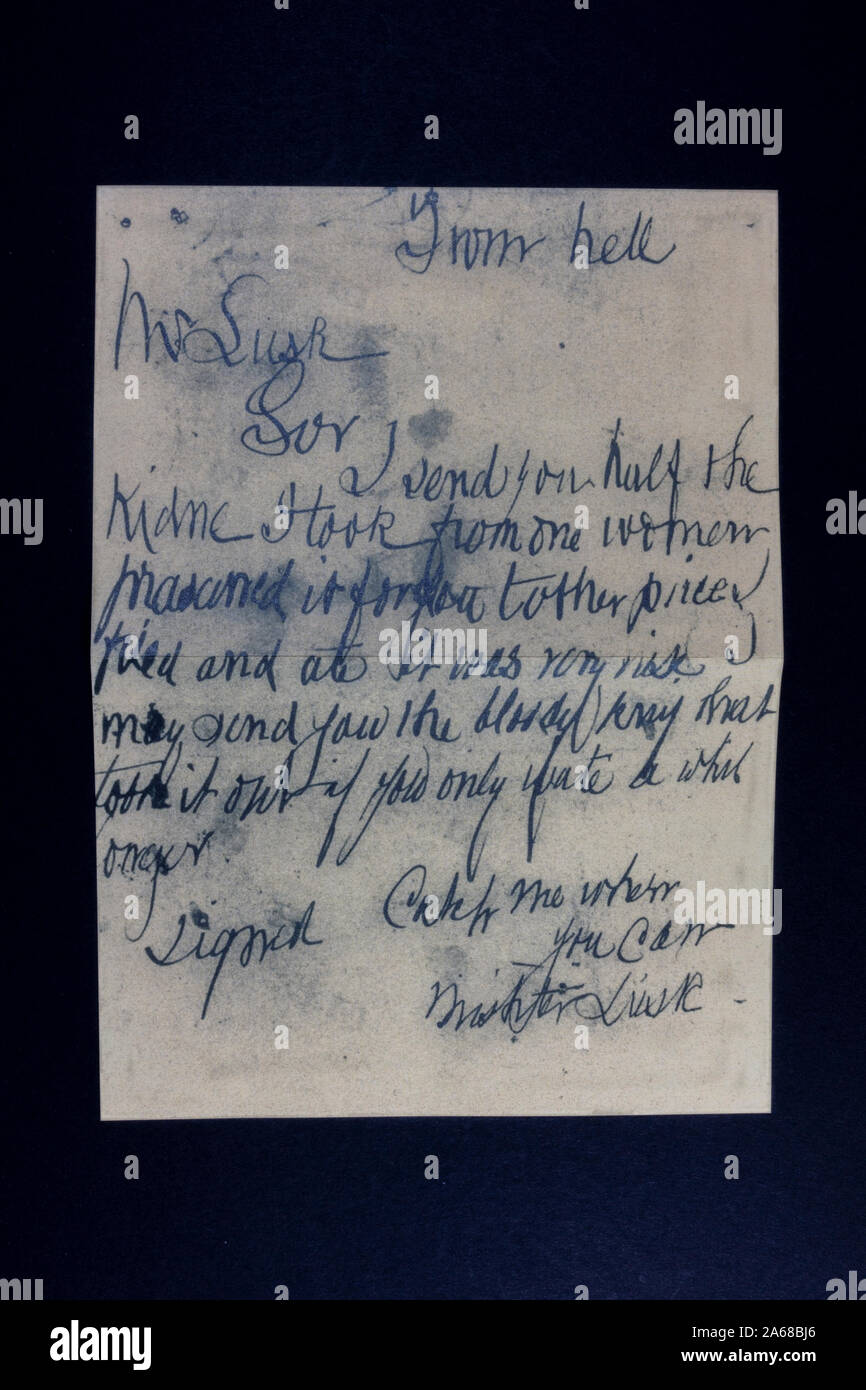 From hell
Mr Lusk
Sor
I send you half the
Kidne I took from one women
prasarved it for you tother piece I
fried and ate it was very nise I
may send you the bloody knif that
took it out if you only wate a whil
longer.
signed Catch me when
you Can
Mishter Lusk.
alamy
Image ID: 2A68BJ6
www.alamy.com